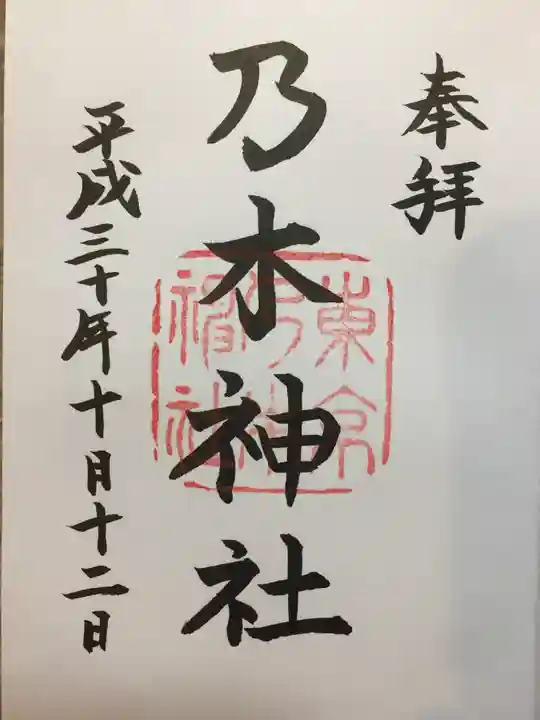 奉拝
乃木神社
東京
乃木
神社
平成三十年十月十二日